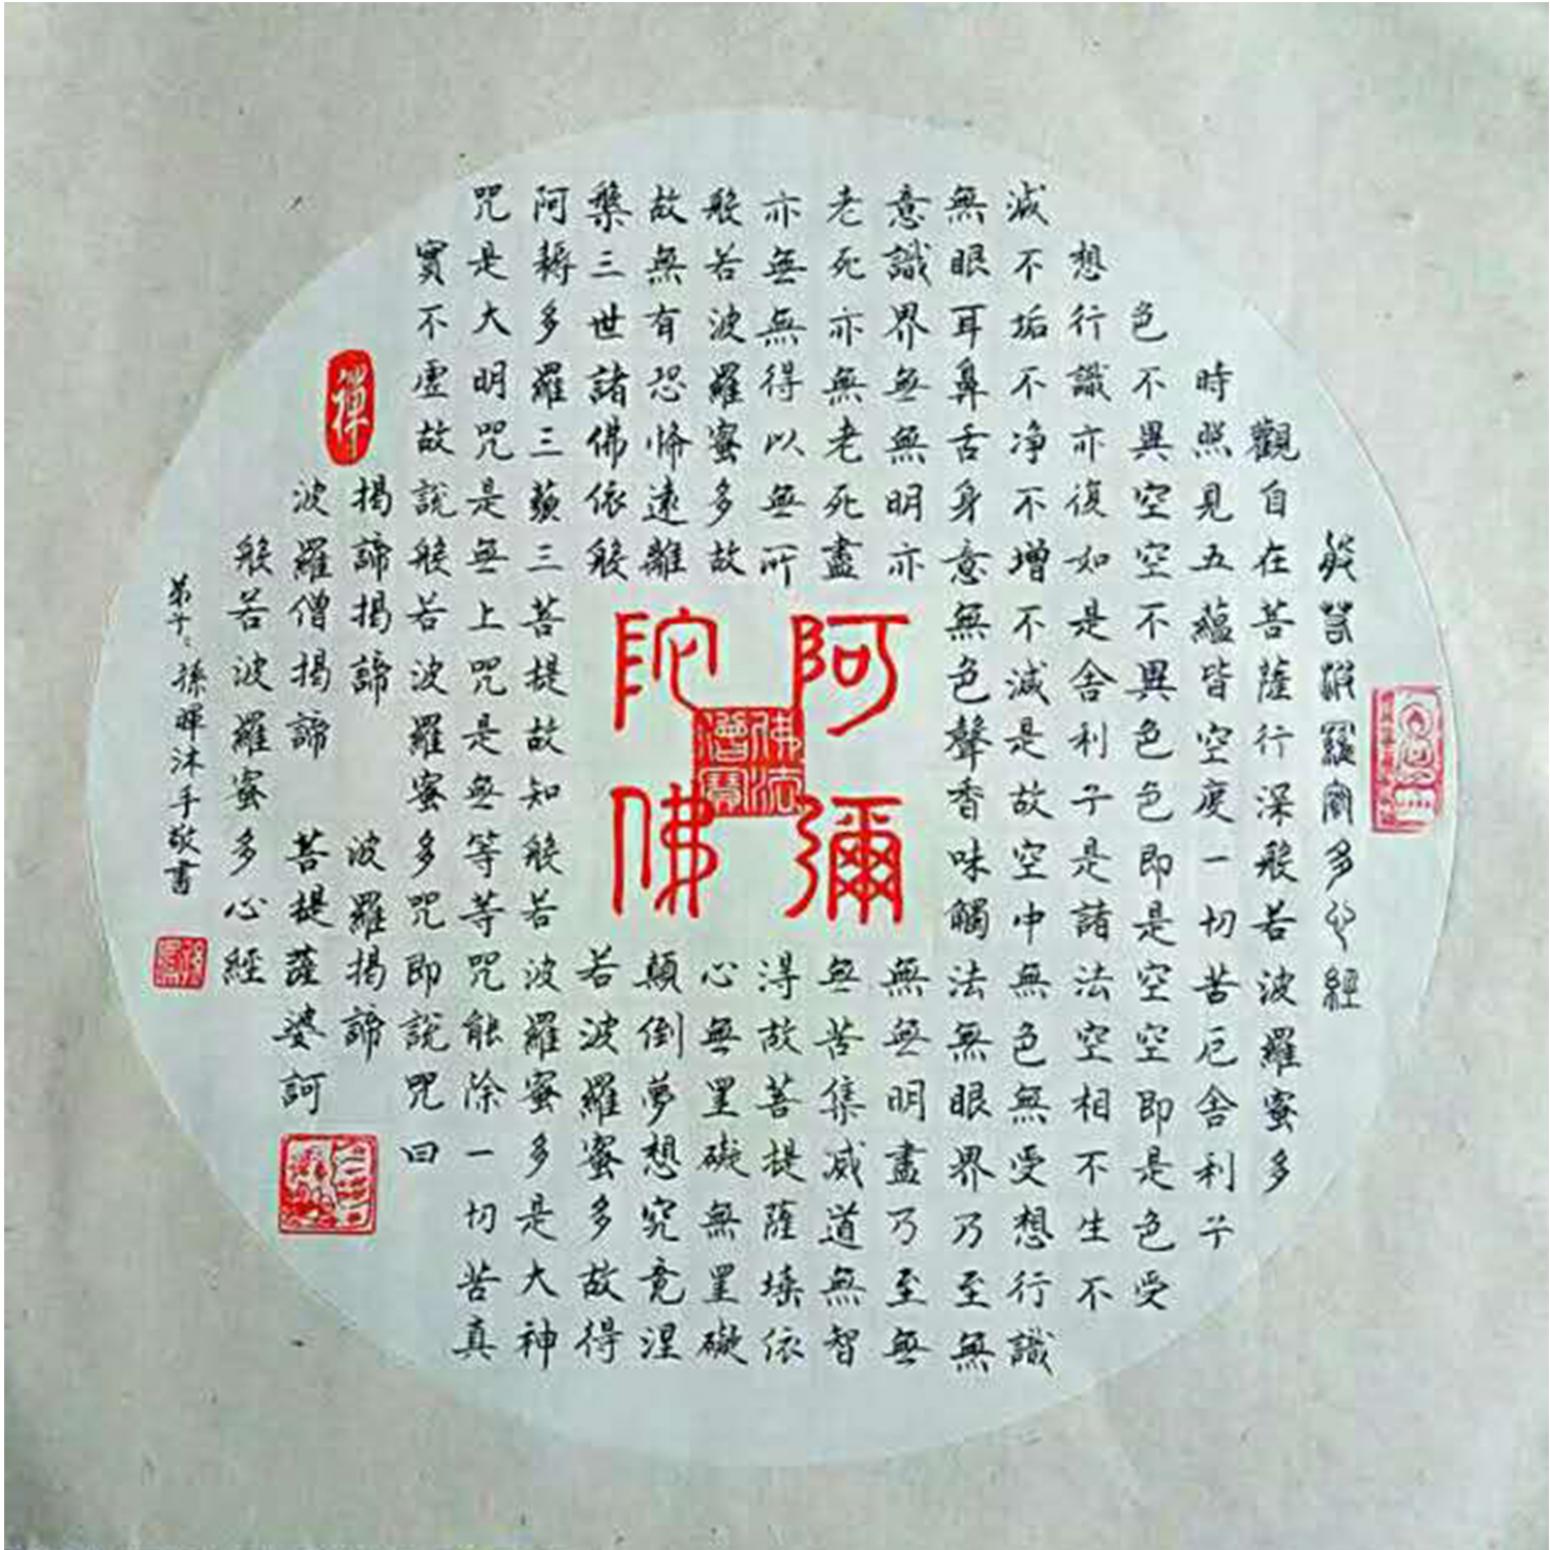 般若波羅蜜多心經
觀自在菩薩行深般若波羅蜜多
時照見五蘊皆空度一切苦厄舍利子
色不異空空不異色色即是空空即是色受
想行識亦復如是舍利子是諸法空相不生不
滅不垢不净不增不減是故空中無色無受想行識
無眼耳鼻舌身意無色聲香味觸法無眼界乃至無
意識界無無明亦無無明盡乃至無
老死亦無老死盡無苦集滅道無智
亦無無得以無所得故菩提薩埵依
般若波羅蜜多故心無罣礙無罣礙
故無有恐怖遠離顛倒夢想究竟涅
槃三世諸佛依般若波羅蜜多故得
阿耨多羅三藐三菩提故知般若波羅蜜多是大神
咒是大明咒是無上咒是無等等咒能除一切苦真
實不虛故說般若波羅蜜多咒即說咒曰
揭諦揭諦 波羅揭諦
波羅僧揭諦 菩提薩婆訶
般若波羅蜜多心經
弟子孫暉沐手敬書
阿彌
陀佛
佛法
僧寶
禪